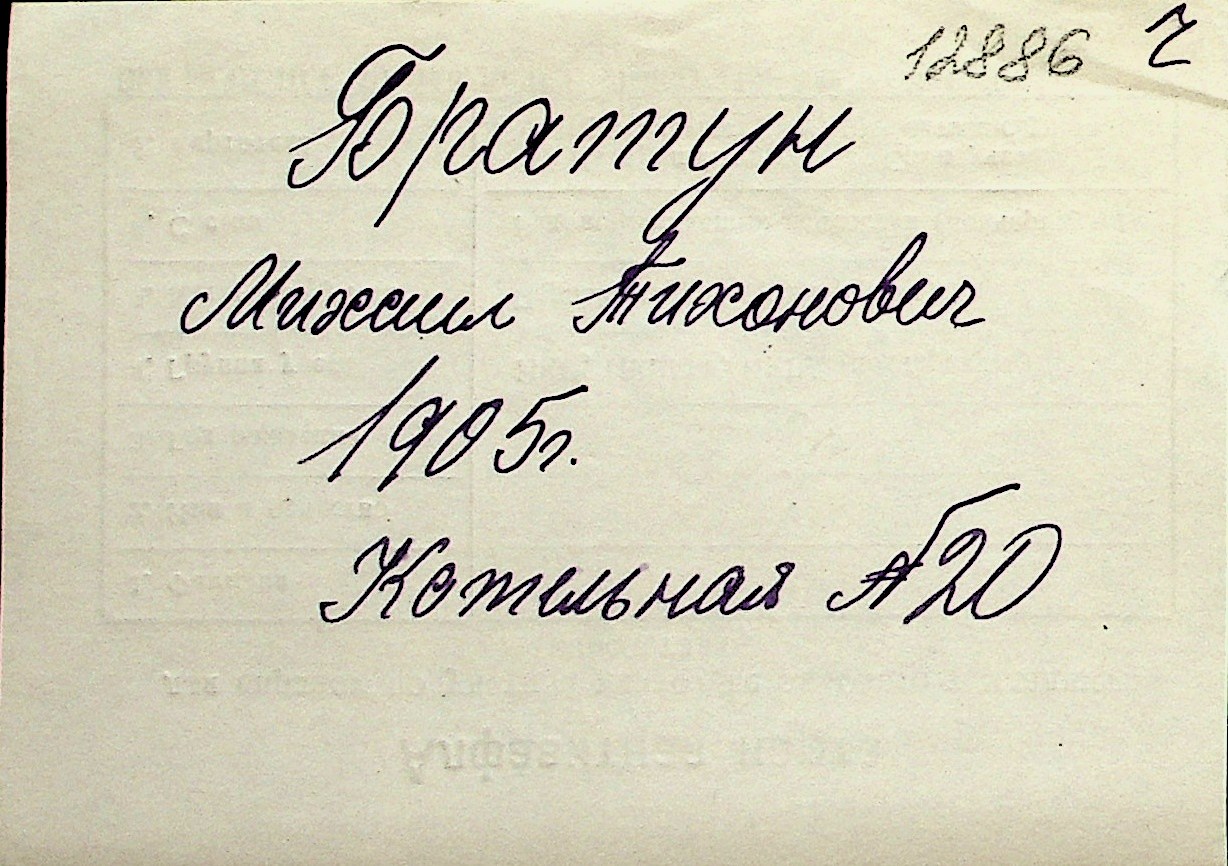 12886 ч
Братун
Михаил Тихонович
1905г.
Котельная №20